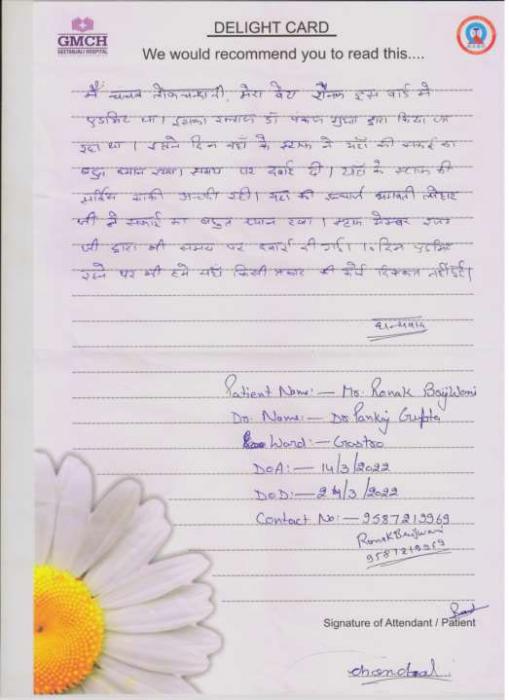 GMCH
GEETANJALI HOSPITAL
DELIGHT CARD
We would recommend you to read this....
मैं चनन लोकचन्दानी, मेरा बेटा रौनक इस वार्ड में
एडमिट था। इसका इलाज डॉ पंकज गुप्ता द्वारा किया जा
रहा था। इतने दिन यहाँ के स्टाफ ने यहाँ की सफाई का
बहुत ध्यान रखा। समय पर दवाई दी। यहाँ के स्टाफ की
सर्विस काफी अच्छी रही। यहां की इन्चार्ज भगवती लोहार
जी ने सफाई का बहुत ध्यान रखा। स्टाफ मेम्बर
जी द्वारा भी समय पर दवाई दी गई। 10 दिन एडमिट
रहने पर भी हमें यहाँ किसी प्रकार की कोई दिक्कत नहीं हुई।
धन्यवाद
Patient Name:- Mr. Ronak Bajwani
Dr. Name:- Dr Pankaj Gupta
Ward:- Gastro
DOA:- 14/3/2022
DOD:- 24/3/2022
Contact No:- 9587213969
Ronak
9587213969
Signature of Attendant / Patient